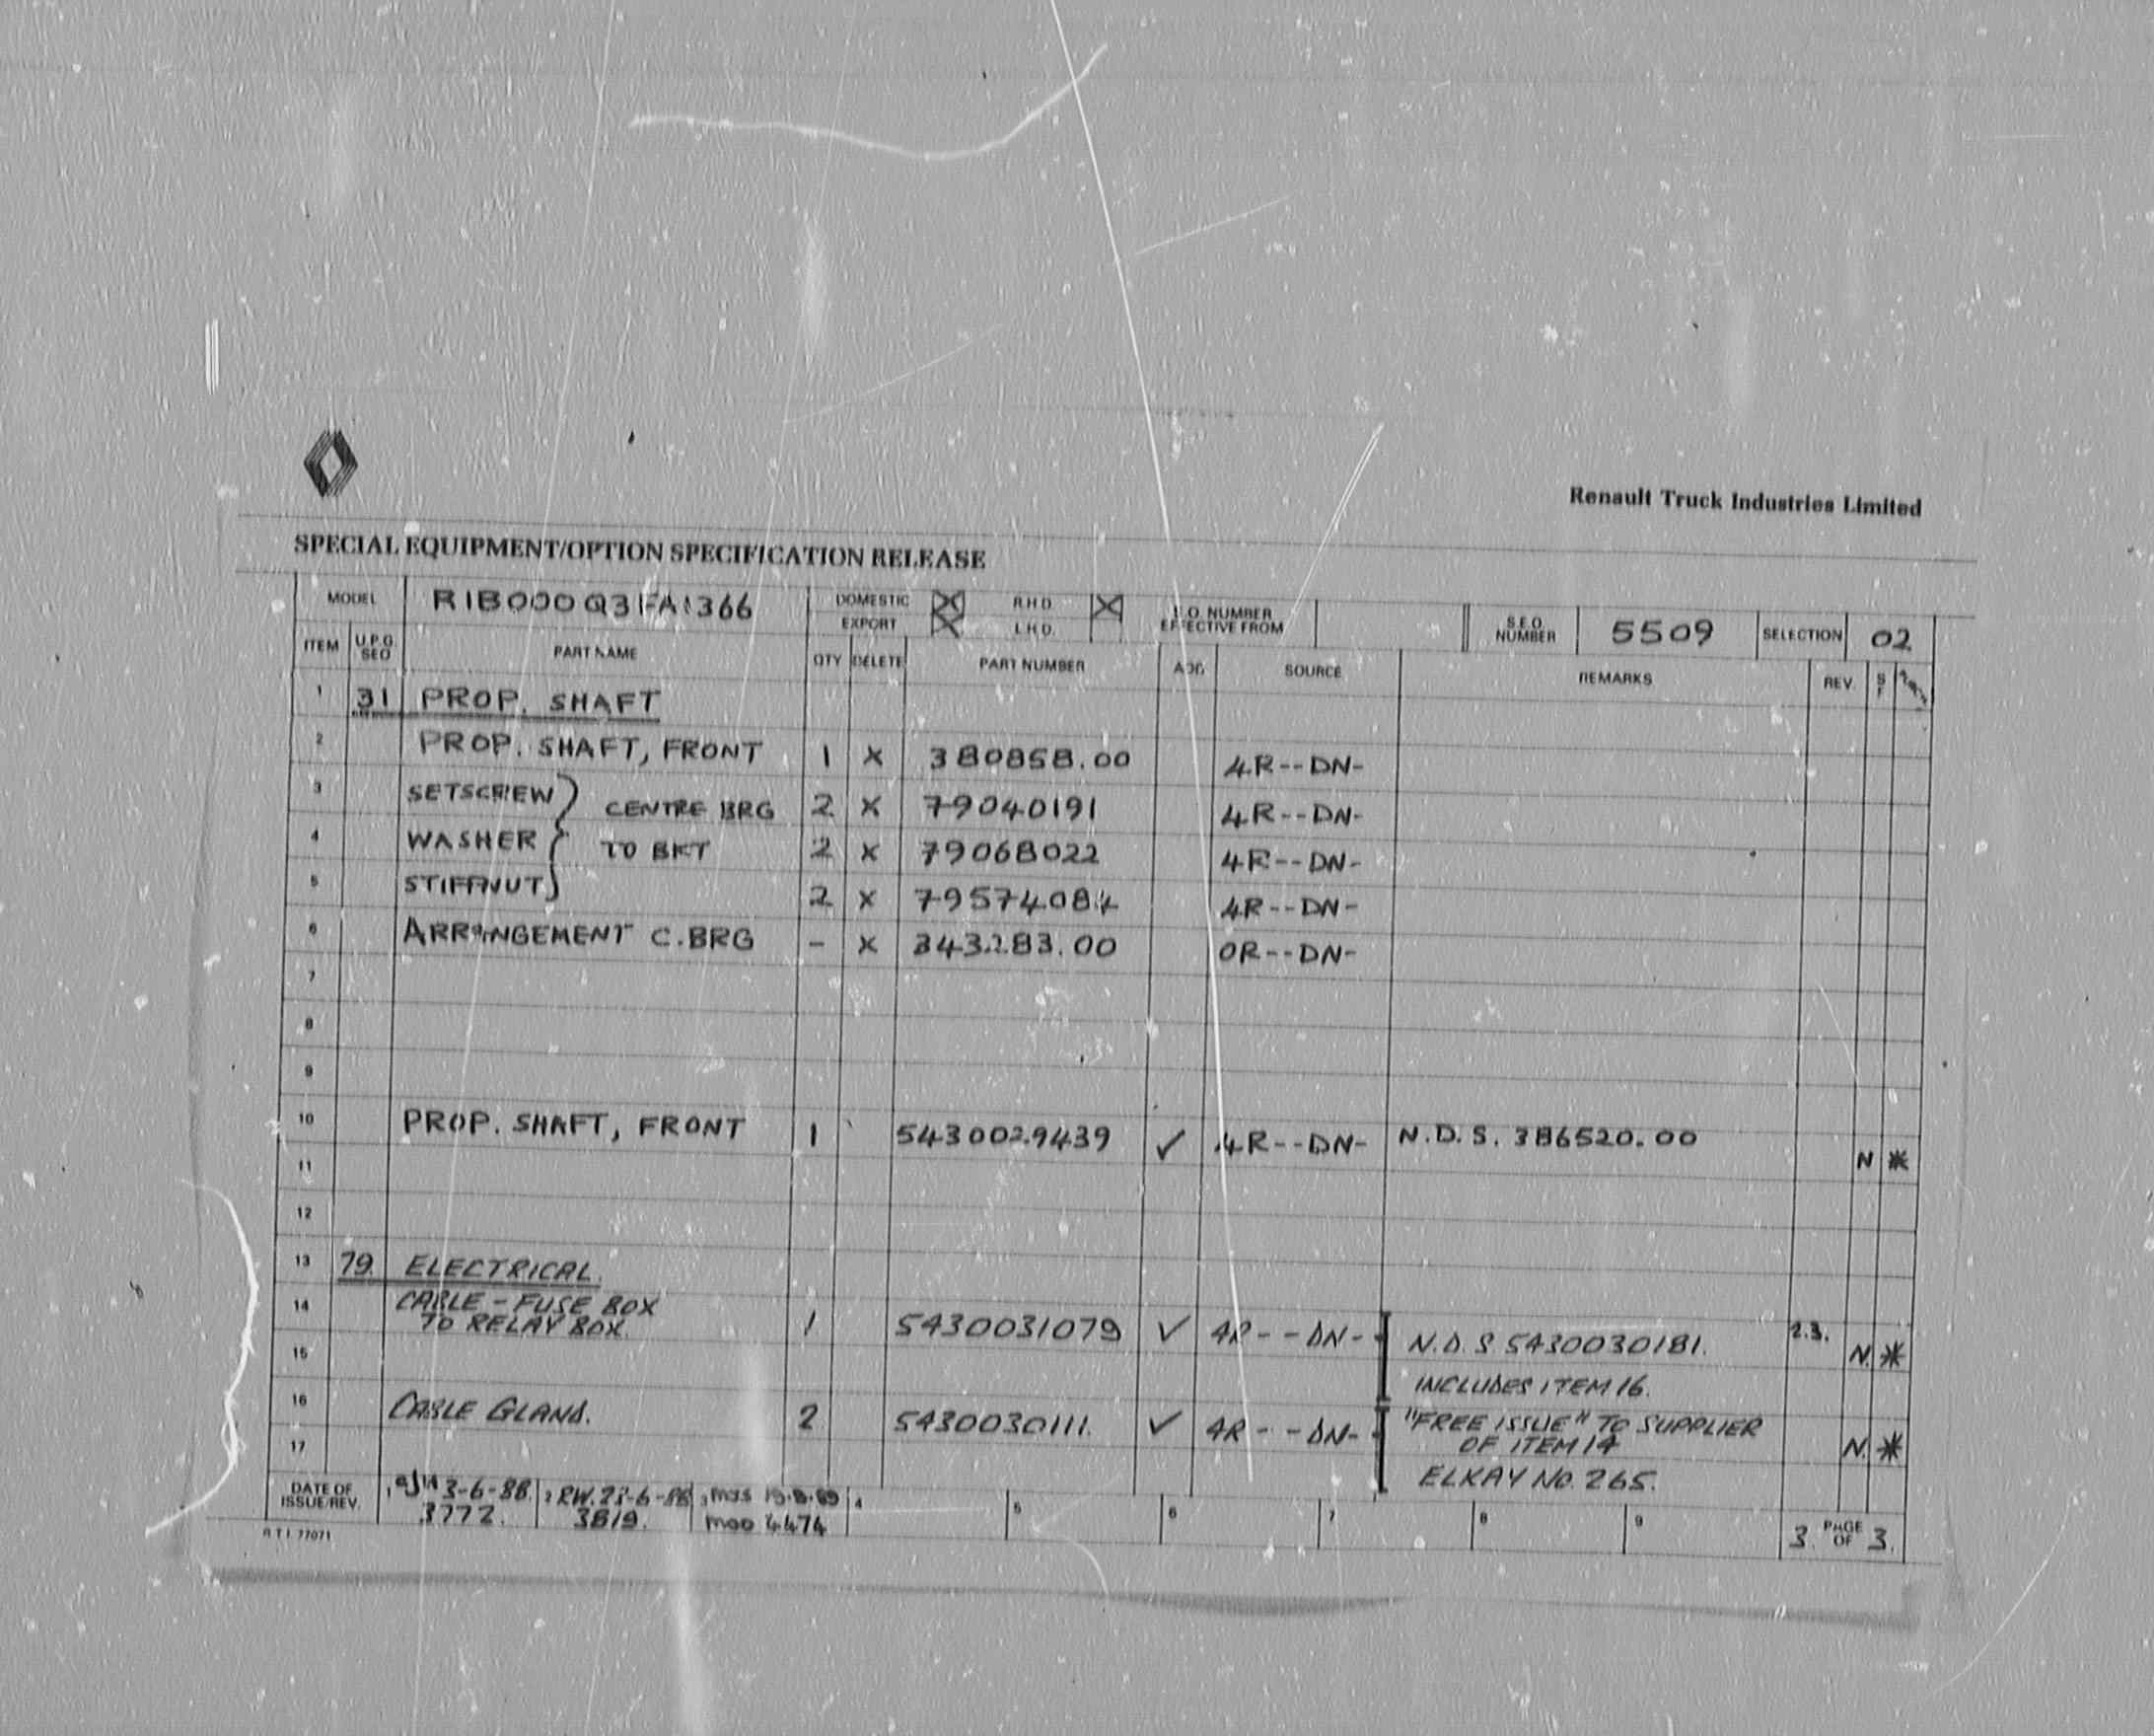 Renault Truck Industries Limited
SPECIAL EQUIPMENT/OPTION SPECIFICATION RELEASE
MODEL R1B000Q31FA1366 DOMESTIC X R.H.D. X E.O. NUMBER EFFECTIVE FROM S.E.O. NUMBER 5509 SELECTION 02
EXPORT X L.H.D.
ITEM U.P.G. SEQ PART NAME QTY DELETE PART NUMBER ADD SOURCE REMARKS REV. S F
1 31 PROP. SHAFT
2 PROP. SHAFT, FRONT 1 X 380858.00 4R--DN-
3 SETSCREW } CENTRE BRG 2 X 79040191 4R--DN-
4 WASHER } TO BKT 2 X 79068022 4R--DN-
5 STIFFNUT 2 X 79574084 4R--DN-
6 ARRANGEMENT C.BRG - X 343283.00 0R--DN-
7
8
9
10 PROP. SHAFT, FRONT 1 5430029439 ✓ 4R--DN- N.D.S. 386520.00 N *
11
12
13 79. ELECTRICAL.
14 CABLE - FUSE BOX 1 5430031079 ✓ 4R--DN- N.D.S 5430030181. 2.3. N. *
TO RELAY BOX.
15 INCLUDES ITEM 16.
16 CABLE GLAND. 2 5430030111. ✓ 4R--DN- "FREE ISSUE" TO SUPPLIER N. *
OF ITEM 14
17 ELKAY NO. 265.
DATE OF ISSUE/REV. 1 3-6-88. 2 RW. 6-88 3 MJS 89 4 5 6 7 8 9 3. PAGE OF 3.
3772. 3819. 4474
R T I 77071